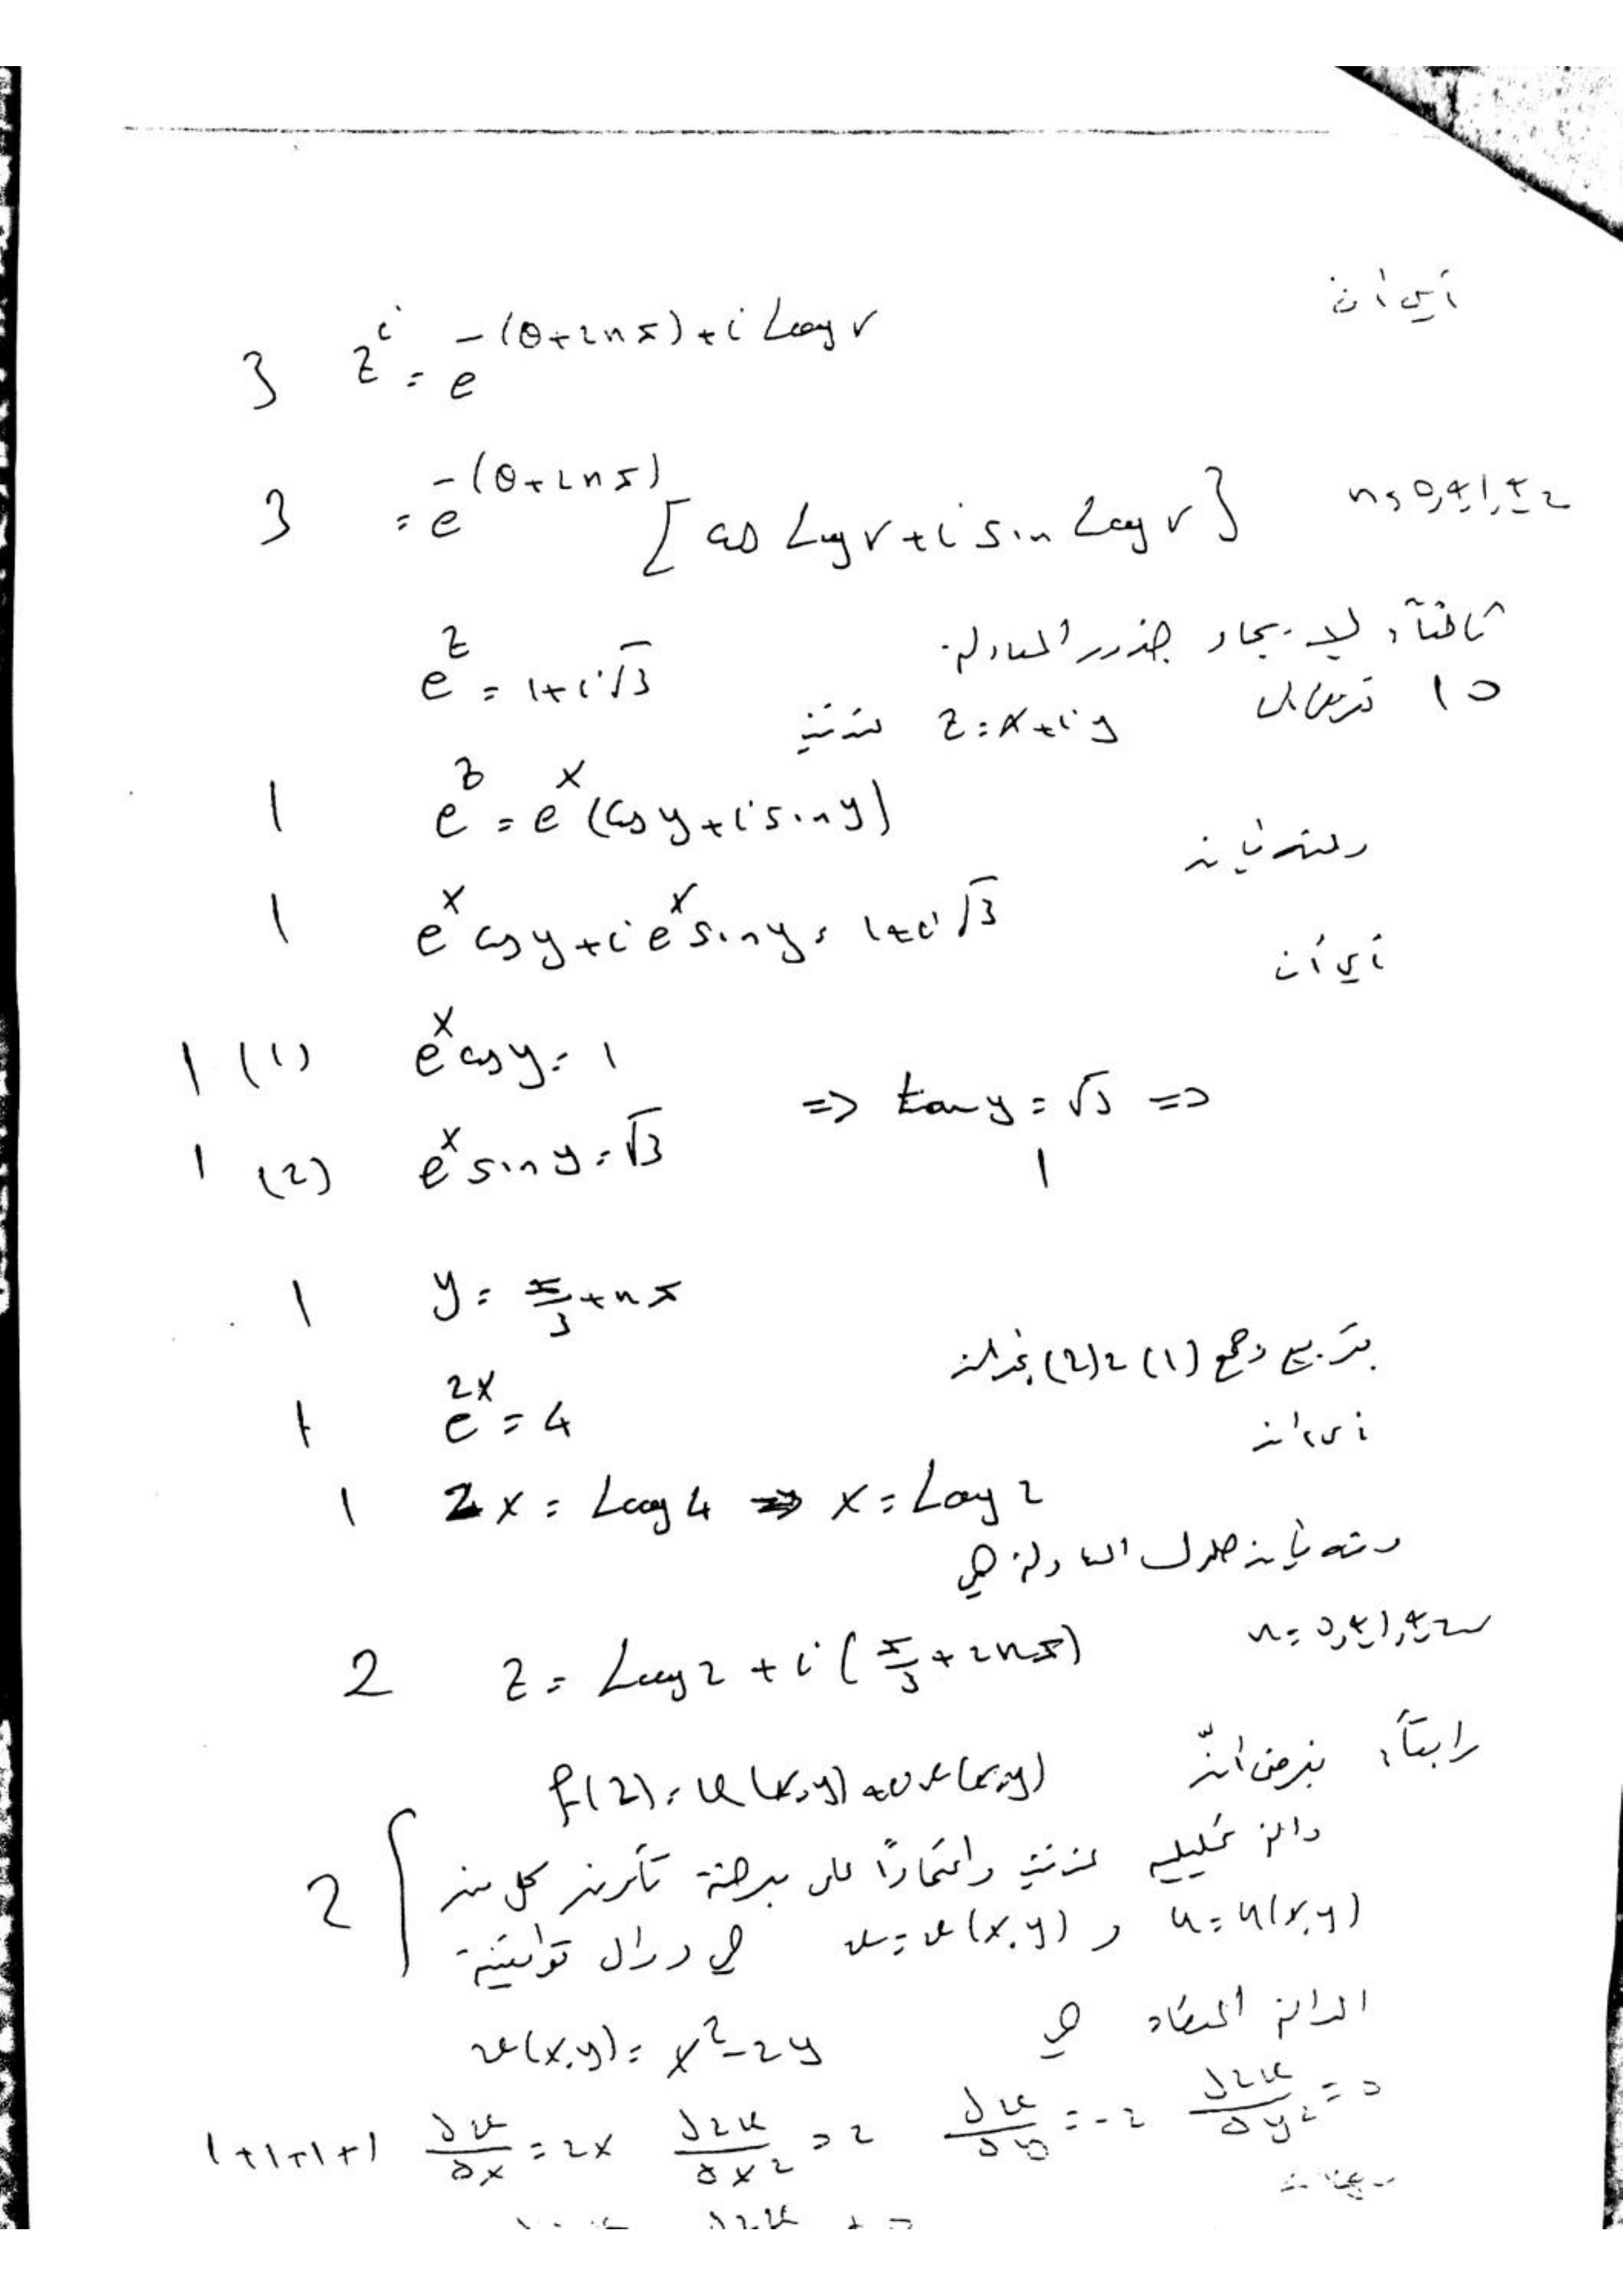 أي أن
3 z^i = e^{-(θ+2nπ)+i Log r}
3 = e^{-(θ+2nπ)} [cos Log r + i sin Log r] n=0,±1,±2
ثالثاً، لإيجاد جذور المعادلة
e^z = 1+i√3
10 نفرض أن z=x+iy عندئذٍ
1 e^z = e^x (cos y + i sin y)
ومنه فإنه
1 e^x cos y + i e^x sin y = 1+i√3
أي أن
1 (1) e^x cos y = 1
⇒ tan y = √3 ⇒
1 (2) e^x sin y = √3 1
1 y = π/3 + nπ
بتربيع وجمع (1) و (2) نجد أن
1 e^{2x} = 4
أي أن
1 2x = Log 4 ⇒ x = Log 2
ومنه فإن حلول المعادلة هي
2 z = Log 2 + i(π/3 + 2nπ) n=0,±1,±2
رابعاً، بفرض أنّ f(z) = u(x,y)+iv(x,y)
دالة تحليلية عندئذٍ واعتماداً على مبرهنة تكون كل من
2 u=u(x,y) و v=v(x,y) هي دوال توافقية
الدالة المعطاة هي v(x,y) = x²-2y
1+1+1+1 ∂v/∂x = 2x ∂²v/∂x² = 2 ∂v/∂y = -2 ∂²v/∂y² = 0